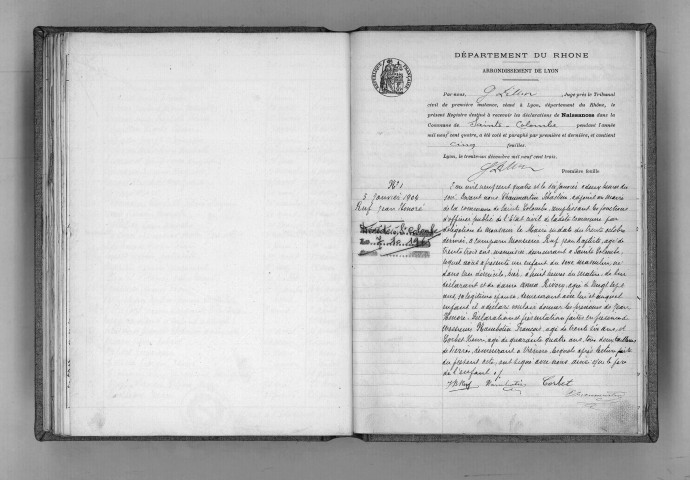 RÉPUBLIQUE FRANÇAISE
DÉPARTEMENT DU RHONE
ARRONDISSEMENT DE LYON
Par nous, Juge près le Tribunal
civil de première instance, séant à Lyon, département du Rhône, le
présent Registre destiné à recevoir les déclarations de Naissances dans la
Commune de Sainte-Colombe pendant l'année
mil neuf cent quatre, a été coté et paraphé par première et dernière, et contient
cinq feuilles.
Lyon, le trente-un décembre mil neuf cent trois.
Première feuille
N° 1
3 Janvier 1904
Ruf Jean Honoré
L'an mil neuf cent quatre et le dix janvier à deux heures du
soir, devant nous adjoint au Maire
de la commune de Sainte Colombe, remplissant les fonctions
d'officier public de l'état civil de ladite commune par
délégation de Monsieur le Maire en date du trente octobre
dernier, a comparu Monsieur Ruf Jean Baptiste, âgé de
trente trois ans, menuisier, demeurant à Sainte Colombe,
lequel nous a présenté un enfant du sexe masculin, né
dans son domicile, hier, à huit heures du matin, de lui
déclarant et de dame Anna Rivory, âgée de vingt sept
ans, sa légitime épouse, demeurant avec lui et auquel
enfant il a déclaré vouloir donner les prénoms de Jean
Honoré. Déclaration et présentation faites en présence de
Messieurs François, âgé de trente six ans, et
Corbet Henri, âgé de quarante quatre ans, tous deux tailleurs
de pierres, demeurant à Lesquels après lecture faite
du présent acte, ont signé avec nous ainsi que le père
de l'enfant ./.
JB Ruf Corbet